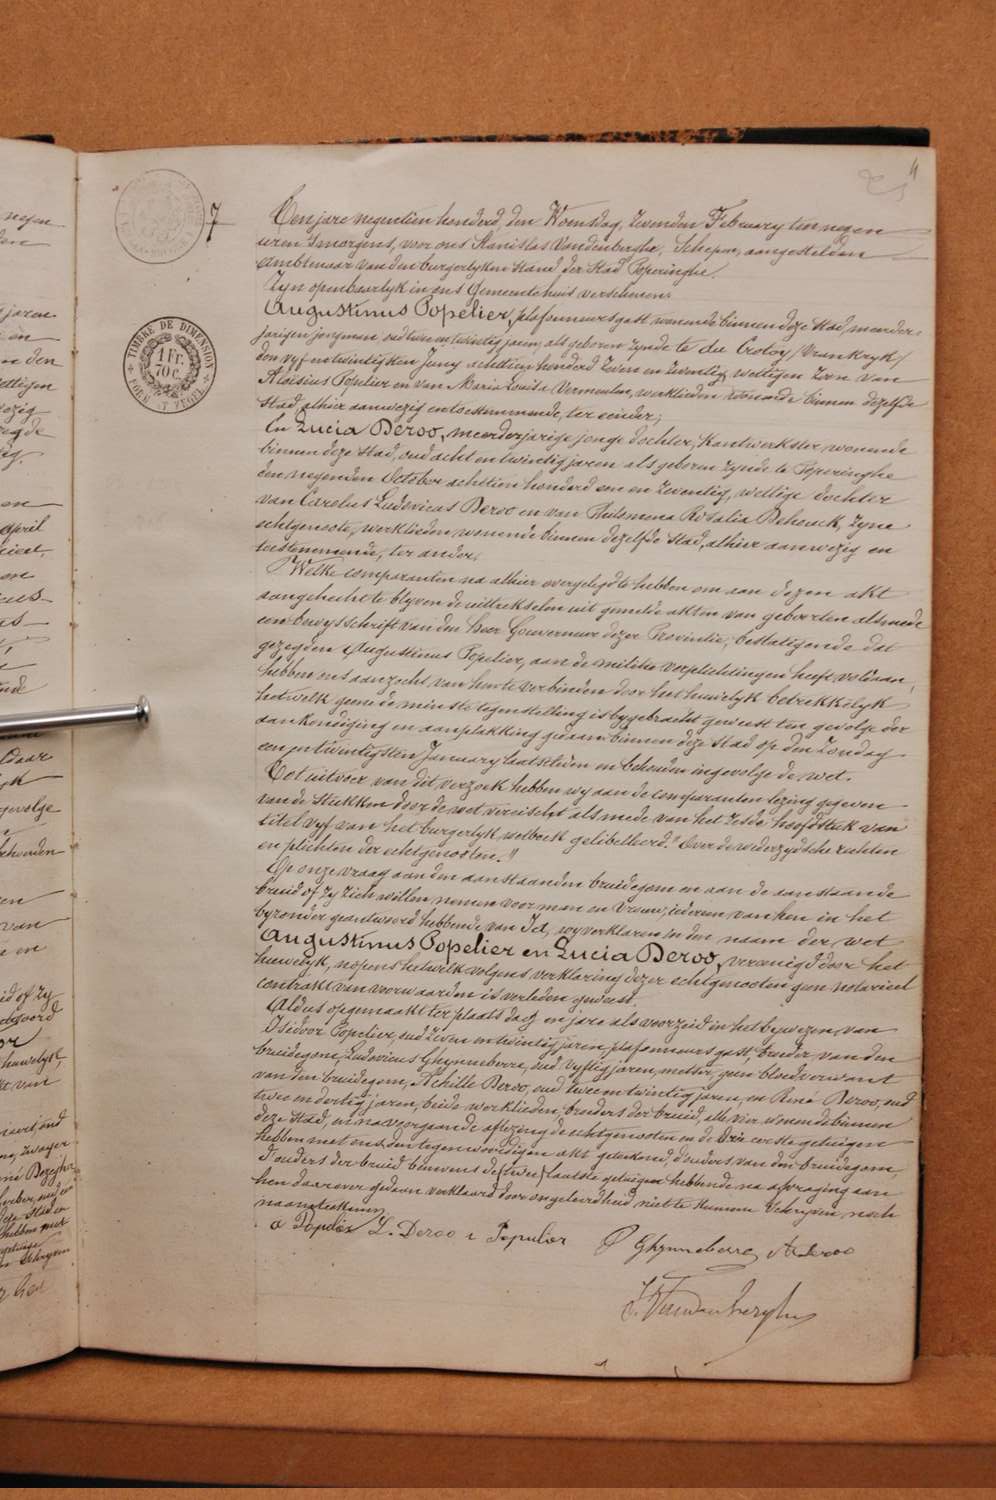 7
Een jare negentien honderd, den Woensdag, zevenden February ten negen
uren 's morgens, voor ons Stanislas Vandenberghe, Schepen, aangestelden
Ambtenaar van den burgerlyken stand der Stad Poperinghe
Zyn openbaarlyk in ons Gemeentehuis verschenen:
Augustinus Popelier, plafonneursgast wonende binnen deze stad, meerder-
jarigen jongman, oud twee en twintig jaren, als geboren zynde te du Crotoy /Vrankryk/
den vyf en twintigsten Juny achttien honderd zeven en zeventig, wettigen zoon van
Aloisius Popelier en van Maria Louisa Vermeulen, werklieden wonende binnen dezelfde
stad, alhier aanwezig en toestemmende, ter eender;
En Lucia Deroo, meerderjarige jonge dochter, kantwerkster, wonende
binnen deze stad, oud acht en twintig jaren als geboren zynde te Poperinghe
den negenden October achttien honderd een en zeventig, wettige dochter
van Carolus Ludovicus Deroo en van Philomena Rosalia Dehouck, zyne
echtgenoote, werklieden wonende binnen dezelfde stad, alhier aanwezig en
toestemmende, ter ander.
Welke comparanten na alhier overgelegd te hebben om aan dezen akt
aangehecht te blyven de uittrekselen uit gemelde akten van geboorten alsmede
een bewysschrift van den Heer Gouverneur dezer Provintie, bestatigende dat
gezegden Augustinus Popelier, aan de militie verplichtingen heeft voldaan,
hebben ons aanzocht van hun te verbinden door het huwelyk betrekkelyk
hetwelk geene de minste tegenstelling is bygebracht geweest ten gevolge der
aankondiging en aanplakking gedaan binnen deze stad op den Zondag
een en twintigsten January laatstleden en behouden ingevolge de wet.
Tot uitvoer van dit verzoek hebben wy aan de comparanten lezing gegeven
van de stukken door de wet vereischt alsmede van het zesde hoofdstuk van
titel vyf van het burgerlyk wetboek gelibelleerd: "Over de wederzydsche rechten
en plichten der echtgenooten."
Op onze vraag aan den aanstaanden bruidegom en aan de aanstaande
bruid of zy zich willen nemen voor man en vrouw, iedereen van hen in het
byzonder geantwoord hebbende van Ja, wy verklaren in den naam der wet
Augustinus Popelier en Lucia Deroo, vereenigd door het
huwelyk, nopens hetwelk volgens verklaring dezer echtgenooten geen notarieel
contrakt van voorwaarden is verleden geweest.
Aldus opgemaakt ter plaats dag en jare als voorzeid in het bywezen van
Isidoor Popelier, oud zeven en twintig jaren, plafonneursgast, broeder van den
bruidegom, Ludovicus Ghynneberre, oud vyftig jaren, metser, geen bloedverwant
van den bruidegom, Achille Deroo, oud twee en twintig jaren, en René Deroo, oud
twee en dertig jaren, beide werklieden, broeders der bruid, alle vier wonende binnen
deze stad, en na voorgaande aflezing de echtgenooten en de drie eerste getuigen
hebben met ons den tegenwoordigen akt geteekend, d'ouders van den bruidegom,
d'ouders der bruid benevens de laatste getuigen hebbende na afvraging aan
hen daarover gedaan verklaard door ongeleerdheid niet te kunnen schryven noch
naamteekenen.
a Popelier L. Deroo i Popelier Ghynneberre A Deroo
S. Vandenberghe
TIMBRE DE DIMENSION
1 FR.
70 C.
FORM T ZEGEL